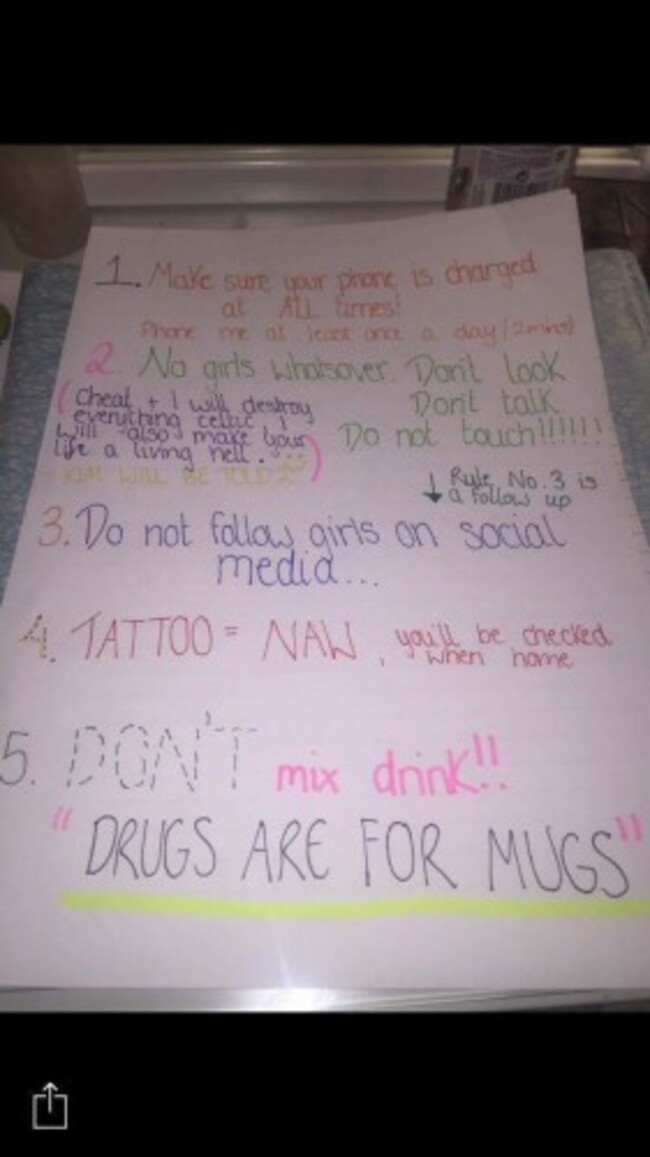 1. Make sure your phone is charged
at ALL times!
Phone me at least once a day (2mins)
2. No girls whatsover. Don't look
Don't talk
Do not touch!!!!!!
(Cheat + I will destroy
everything celtic, I
will also make your
life a living hell.)
WILL BE TOLD
↓ Rule No. 3 is
a follow up
3. Do not follow girls on social
media...
4. TATTOO = NAW, you'll be checked
when home
5. DON'T mix drink!!
"DRUGS ARE FOR MUGS"